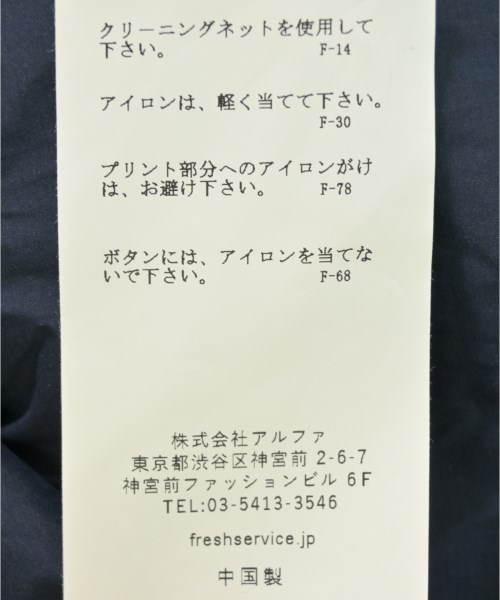 クリーニングネットを使用して
下さい。 F-14
アイロンは、軽く当てて下さい。
F-30
プリント部分へのアイロンがけ
は、お避け下さい。 F-78
ボタンには、アイロンを当てな
いで下さい。 F-68
株式会社アルファ
東京都渋谷区神宮前 2-6-7
神宮前ファッションビル 6F
TEL:03-5413-3546
freshservice.jp
中国製